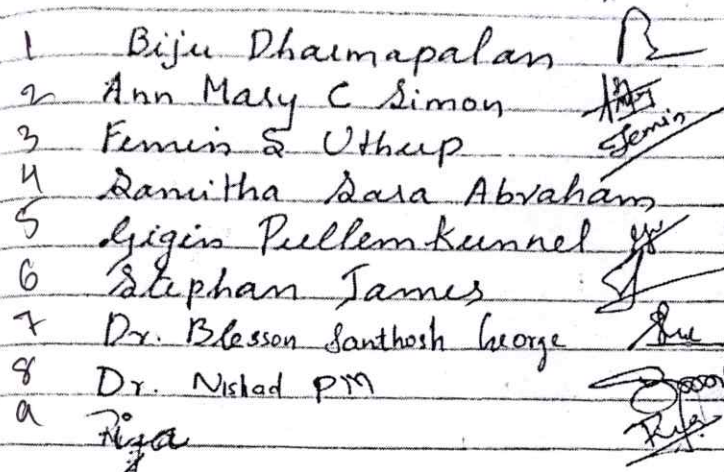 1 Biju Dharmapalan
2 Ann Mary C Simon
3 Femin S Uthup Femin
4 Samitha Sara Abraham
5 Gigin Pullemkunnel
6 Stephan James
7 Dr. Blesson Santhosh George
8 Dr. Nishad PM
9 Riya Riya